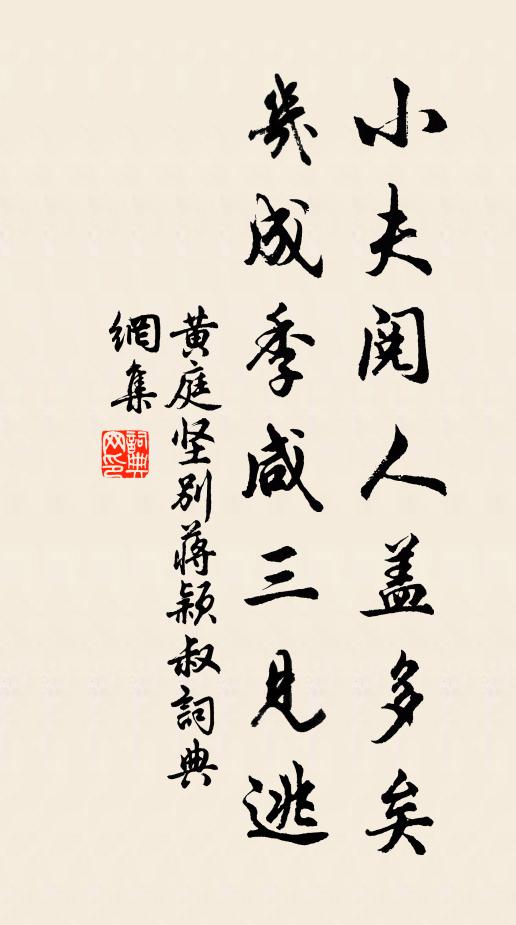 小夫阅人盖多矣
几成季咸三见逃
黄庭坚别蒋颖叔詞典
網集
詞典
网印